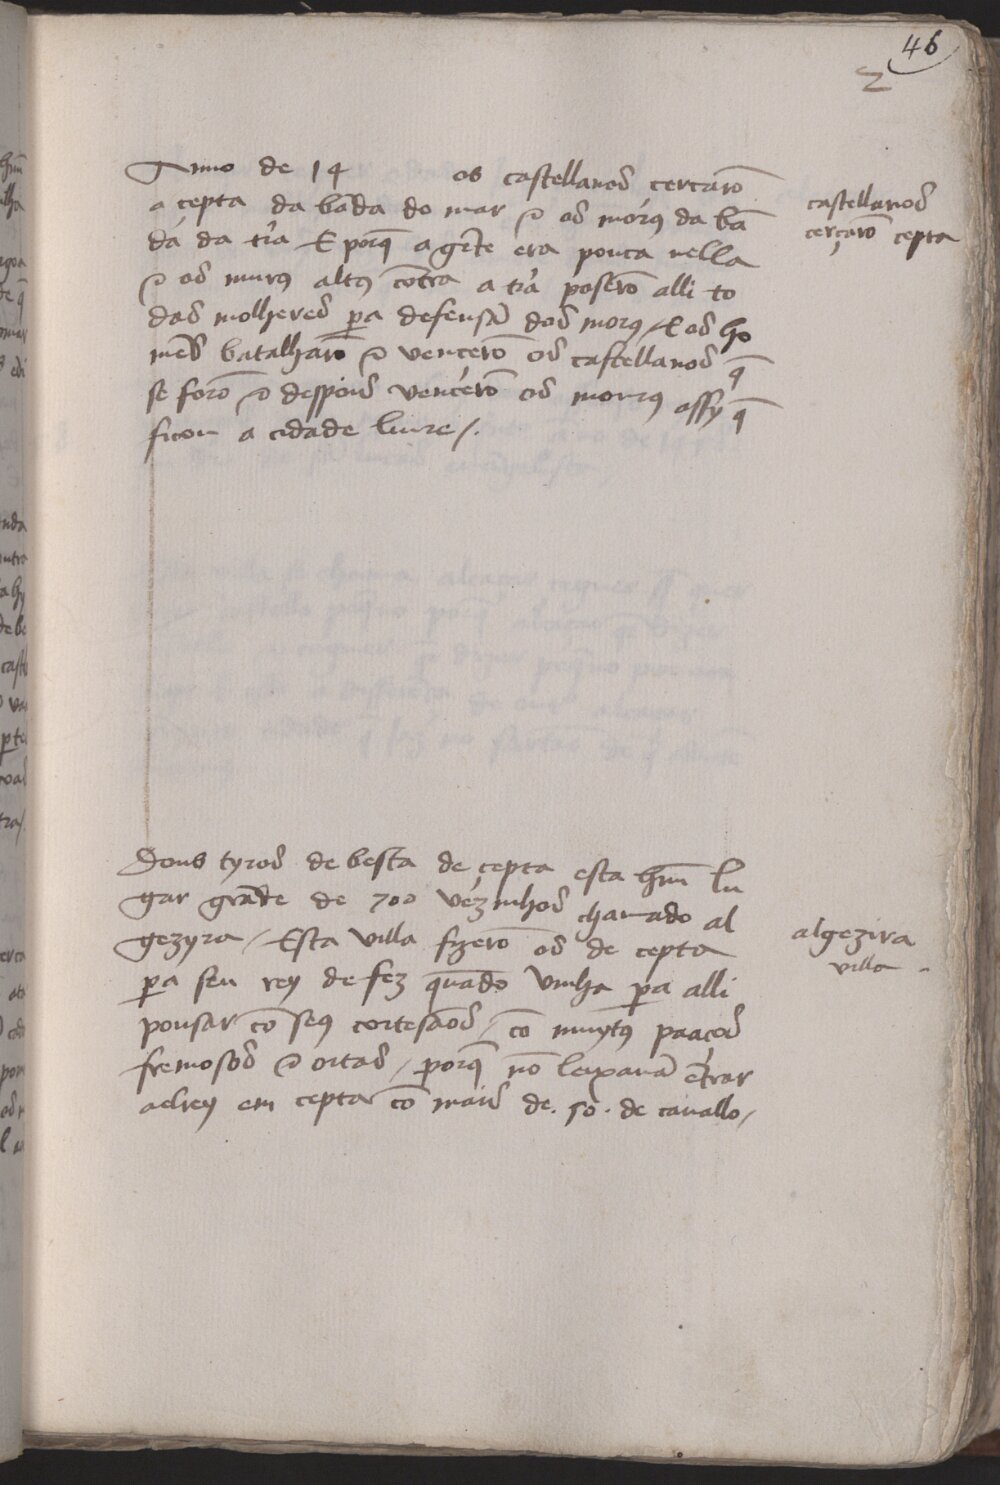 46
2
Anno de 14 os castellanos cercarõ
a cepta da bãda do mar ⁊ os mórꝯ da bã
da da tr̃a E porq̃ a gẽte era pouca nella
⁊ os murꝯ altꝯ cõtra a tr̃a poserõ alli to
das molheres pa defensã dos morꝯ / E os ho
mẽs batalharõ ⁊ vencerõ os castellanos q̃
se forõ ⁊ despois vencerõ os mourꝯ assy q̃
ficou a cidade liure /.
castellanos
cercarõ cepta
Dous tyros de besta de cepta esta hũ lu
gar grãde de 700 vezinhos chamado al
gezyra / Esta villa fizerõ os de cepta
pa seu rey de fez quãdo vinha pa alli
pousar cõ seꝯ cortesaõs / cõ muytꝯ paaços
fremosos ⁊ ortas / porq̃ nõ leixauã ẽtrar
aelrey em cepta cõ mais de .50. de cauallo /
algezira
villa